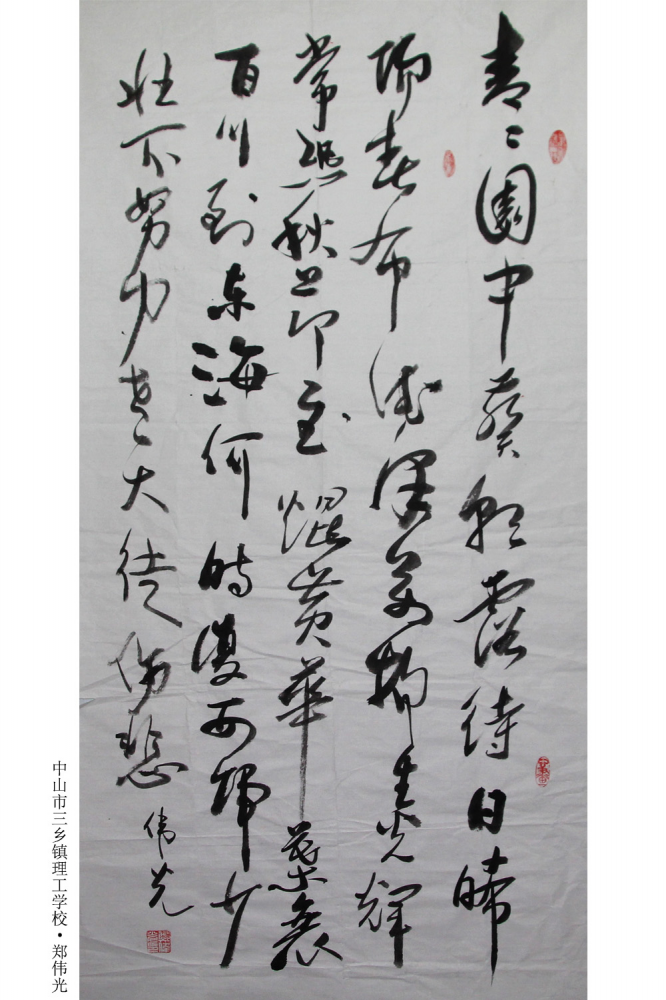 青〻園中葵朝露待日晞
陽春布德澤萬物生光輝
常恐秋节至焜黄華葉衰
百川到東海何時復西歸少
壮不努力老大徒傷悲
伟光
中山市三乡镇理工学校•郑伟光